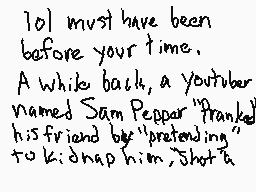 lol must have been
before your time.
A while back, a youtuber
named Sam Pepper "Pranked"
his friend by "pretending"
to kidnap him, "shot" a